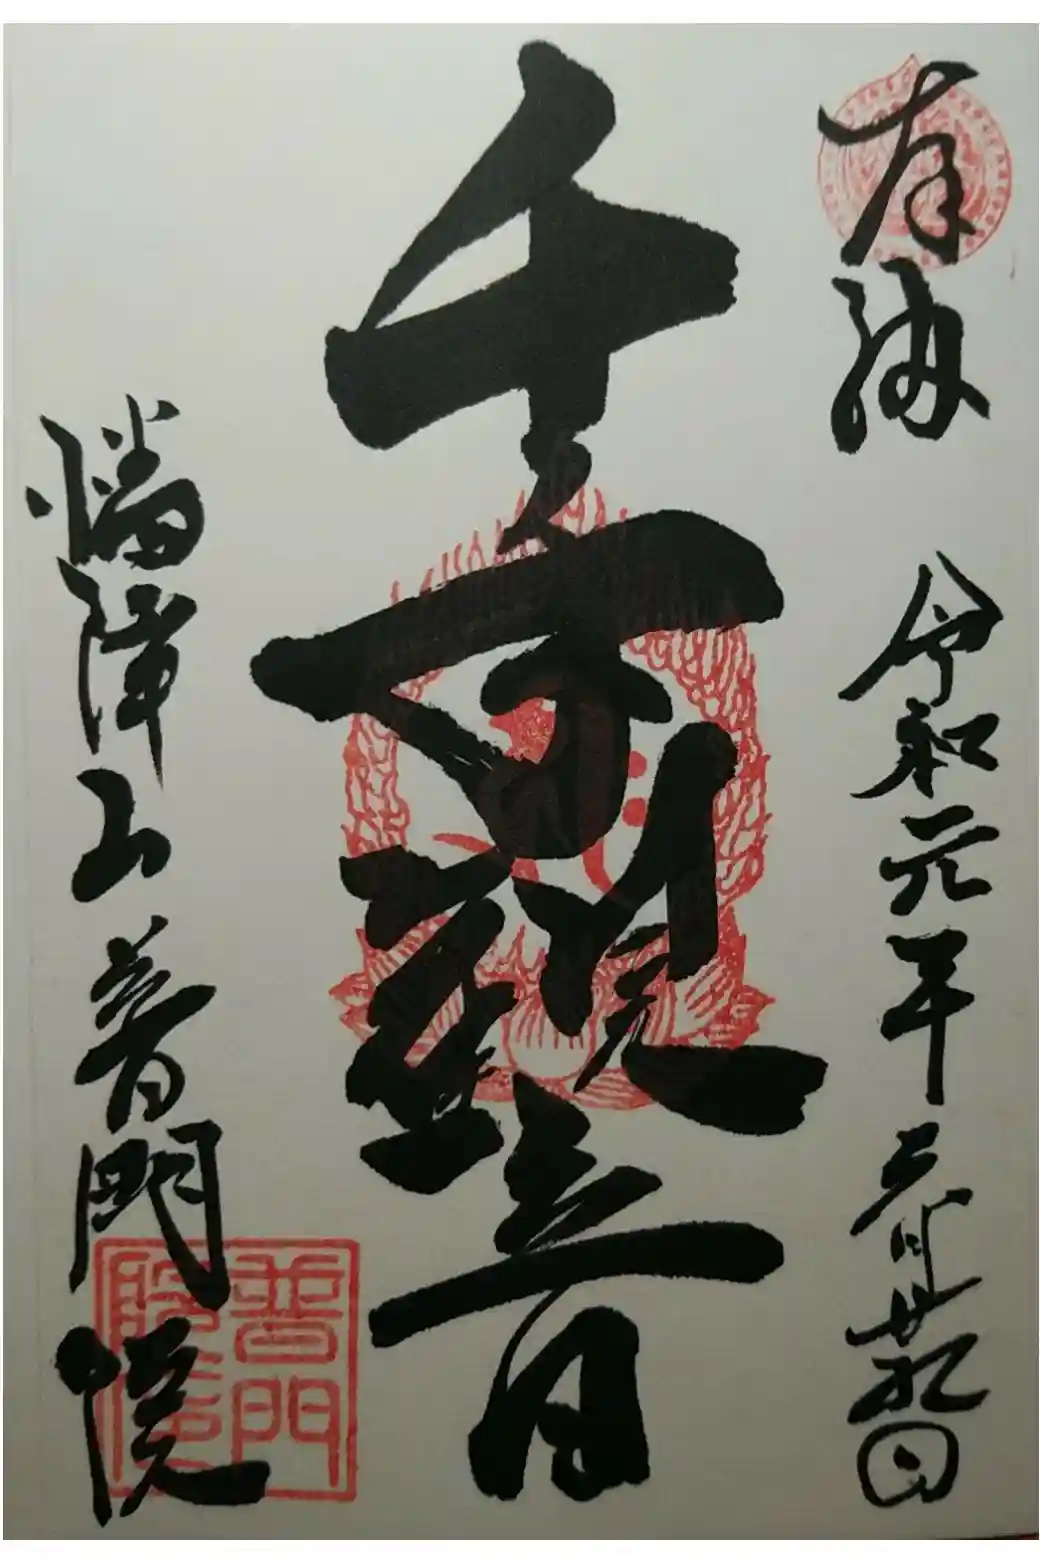 奉納 令和元年 五月廿九日
千手観世音
幡降山普門院
普門院